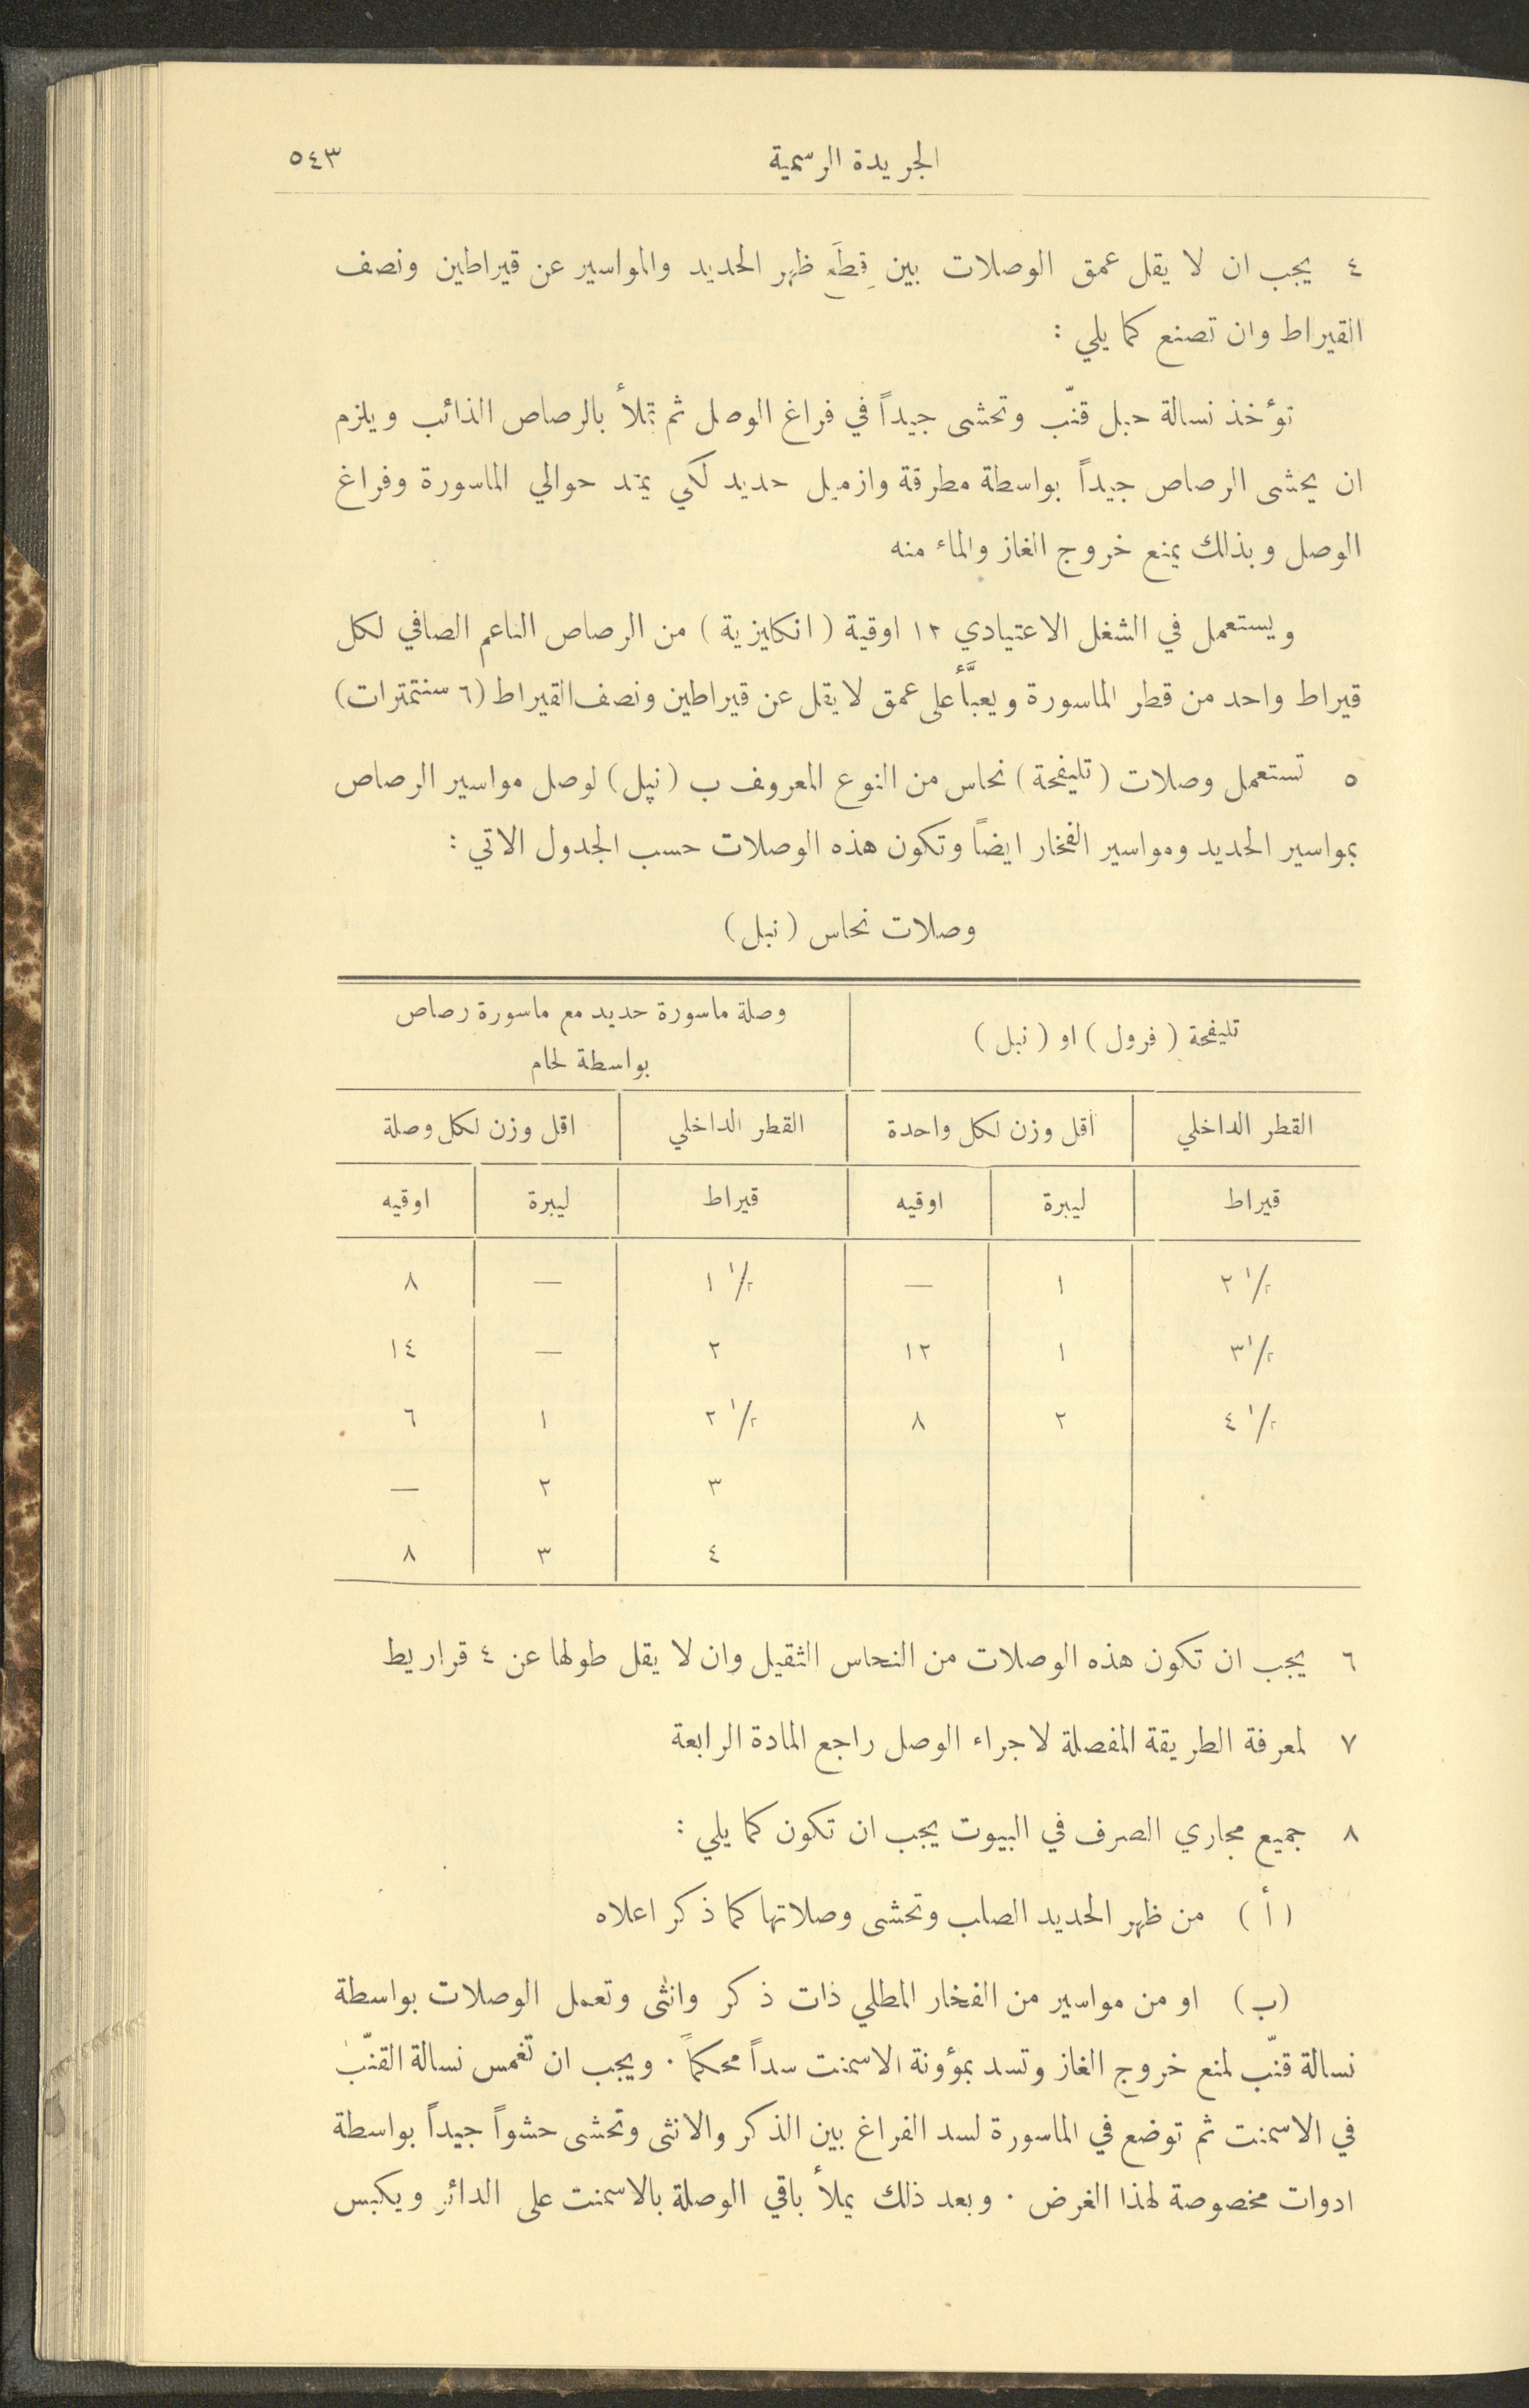 الجريدة الرسمية ٥٤٣
٤ يجب ان لا يقل عمق الوصلات بين قِطَع ظهر الحديد والمواسير عن قيراطين ونصف
القيراط وان تصنع كما يلي :
تؤخذ نسالة حبل قنّب وتحشى جيداً في فراغ الوصل ثم تملأ بالرصاص الذائب ويلزم
ان يحشى الرصاص جيداً بواسطة مطرقة وازميل حديد لكي يمتد حوالي الماسورة وفراغ
الوصل وبذلك يمنع خروج الغاز والماء منه
ويستعمل في الشغل الاعتيادي ١٢ اوقية ( انكليزية ) من الرصاص الناعم الصافي لكل
قيراط واحد من قطر الماسورة ويعبَّأ على عمق لا يقل عن قيراطين ونصف القيراط (٦ سنتمترات)
٥ تستعمل وصلات ( تليفحة ) نحاس من النوع المعروف ب ( نپل ) لوصل مواسير الرصاص
بمواسير الحديد ومواسير الفخار ايضاً وتكون هذه الوصلات حسب الجدول الاتي :
وصلات نحاس ( نبل )
تليفحة ( فرول ) او ( نبل ) وصلة ماسورة حديد مع ماسورة رصاص
بواسطة لحام
القطر الداخلي أقل وزن لكل واحدة القطر الداخلي اقل وزن لكل وصلة
قيراط ليبرة اوقيه قيراط ليبرة اوقيه
٢ ١/٢ ١ — ١ ١/٢ — ٨
٣ ١/٢ ١ ١٢ ٢ — ١٤
٤ ١/٢ ٢ ٨ ٢ ١/٢ ١ ٦
٣ ٢ —
٤ ٣ ٨
٦ يجب ان تكون هذه الوصلات من النحاس الثقيل وان لا يقل طولها عن ٤ قراريط
٧ لمعرفة الطريقة المفصلة لاجراء الوصل راجع المادة الرابعة
٨ جميع مجاري الصرف في البيوت يجب ان تكون كما يلي :
( أ ) من ظهر الحديد الصلب وتحشى وصلاتها كما ذكر اعلاه
(ب) او من مواسير من الفخار المطلي ذات ذكر وانثى وتعمل الوصلات بواسطة
نسالة قنّب لمنع خروج الغاز وتسد بمؤونة الاسمنت سداً محكماً . ويجب ان تغمس نسالة القنّب
في الاسمنت ثم توضع في الماسورة لسد الفراغ بين الذكر والانثى وتحشى حشواً جيداً بواسطة
ادوات مخصوصة لهذا الغرض . وبعد ذلك يملأ باقي الوصلة بالاسمنت على الدائر ويكبس